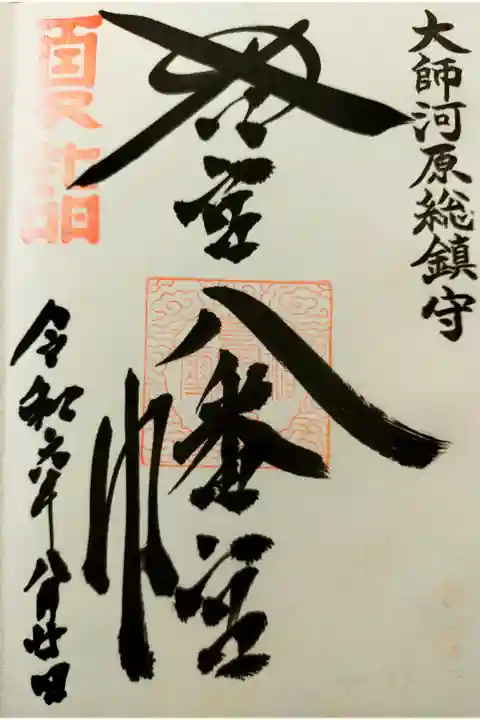 大師河原総鎮守
若宮
八幡宮
夏詣
令和六年八月廿日